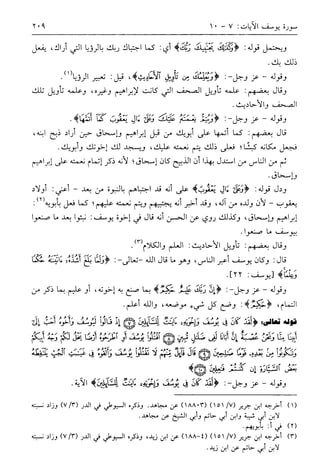 سورة يوسف الآيات: ٧ - ١٠ ٢٠٩
ويحتمل قوله: ﴿وَكَذَٰلِكَ يَجْتَبِيكَ رَبُّكَ﴾ أي: كما اجتباك ربك بالرؤيا التي أراك، يفعل
ذلك بك.
وقوله - عز وجل -: ﴿وَيُعَلِّمُكَ مِن تَأْوِيلِ ٱلْأَحَادِيثِ﴾، قيل: تعبير الرؤيا(١).
وقال بعضهم: علمه تأويل الصحف التي كانت لإبراهيم وغيره، وعلمه تأويل تلك
الصحف والأحاديث.
وقوله - عز وجل -: ﴿وَيُتِمُّ نِعْمَتَهُۥ عَلَيْكَ وَعَلَىٰٓ ءَالِ يَعْقُوبَ كَمَآ أَتَمَّهَا﴾.
قال بعضهم: كما أتمها على أبويك من قبل إبراهيم وإسحاق حين أراد ذبح ابنه،
فجعل مكانه كبشًا؛ فعلى ذلك يتم نعمته عليك، ويسجد لك إخوتك وأبويك.
ثم من الناس من استدل بهذا أن الذبيح كان إسحاق؛ لأنه ذكر إتمام نعمته على إبراهيم
وإسحاق.
ودل قوله: ﴿وَعَلَىٰٓ ءَالِ يَعْقُوبَ﴾ على أنه قد اجتباهم بالنبوة من بعد - أعني: أولاد
يعقوب - لأن ولده من آله، وقد أخبر أنه يجتبيهم ويتم نعمته عليهم؛ كما فعل بأبويه(٢):
إبراهيم وإسحاق، وكذلك روي عن الحسن أنه قال في إخوة يوسف: نبئوا بعد ما صنعوا
بيوسف ما صنعوا.
وقال بعضهم: تأويل الأحاديث: العلم والكلام(٣).
قال: وكان يوسف أعبر الناس، وهو ما قال الله - تعالى -: ﴿وَلَمَّا بَلَغَ أَشُدَّهُۥٓ ءَاتَيْنَٰهُ حُكْمًا
وَعِلْمًا﴾ [يوسف: ٢٢].
وقوله - عز وجل -: ﴿إِنَّ رَبَّكَ عَلِيمٌ حَكِيمٌ﴾ بما صنع به إخوته، أو عليم بما ذكر من
التمام، ﴿حَكِيمٌ﴾: وضع كل شيء موضعه، والله أعلم.
قوله تعالى: ﴿لَّقَدْ كَانَ فِى يُوسُفَ وَإِخْوَتِهِۦٓ ءَايَٰتٌ لِّلسَّآئِلِينَ ۝ إِذْ قَالُوا۟ لَيُوسُفُ وَأَخُوهُ أَحَبُّ إِلَىٰٓ
أَبِينَا مِنَّا وَنَحْنُ عُصْبَةٌ إِنَّ أَبَانَا لَفِى ضَلَٰلٍ مُّبِينٍ ۝ ٱقْتُلُوا۟ يُوسُفَ أَوِ ٱطْرَحُوهُ أَرْضًا يَخْلُ لَكُمْ وَجْهُ أَبِيكُمْ
وَتَكُونُوا۟ مِنۢ بَعْدِهِۦ قَوْمًا صَٰلِحِينَ ۝ قَالَ قَآئِلٌ مِّنْهُمْ لَا تَقْتُلُوا۟ يُوسُفَ وَأَلْقُوهُ فِى غَيَٰبَتِ ٱلْجُبِّ يَلْتَقِطْهُ
بَعْضُ ٱلسَّيَّارَةِ إِن كُنتُمْ فَٰعِلِينَ ۝﴾
وقوله - عز وجل -: ﴿لَّقَدْ كَانَ فِى يُوسُفَ وَإِخْوَتِهِۦٓ ءَايَٰتٌ لِّلسَّآئِلِينَ﴾ الآية.
(١) أخرجه ابن جرير (٧/ ١٥١) (١٨٨٠٣) عن مجاهد. وذكره السيوطي في الدر (٧/٣) وزاد نسبته
لابن أبي شيبة وابن أبي حاتم وأبي الشيخ عن مجاهد.
(٢) في أ: بأبويهم.
(٣) أخرجه ابن جرير (٧/ ١٥١) (١٨٨٠٤) عن ابن زيد، وذكره السيوطي في الدر (٧/٣) وزاد نسبته
لابن أبي حاتم عن ابن زيد.